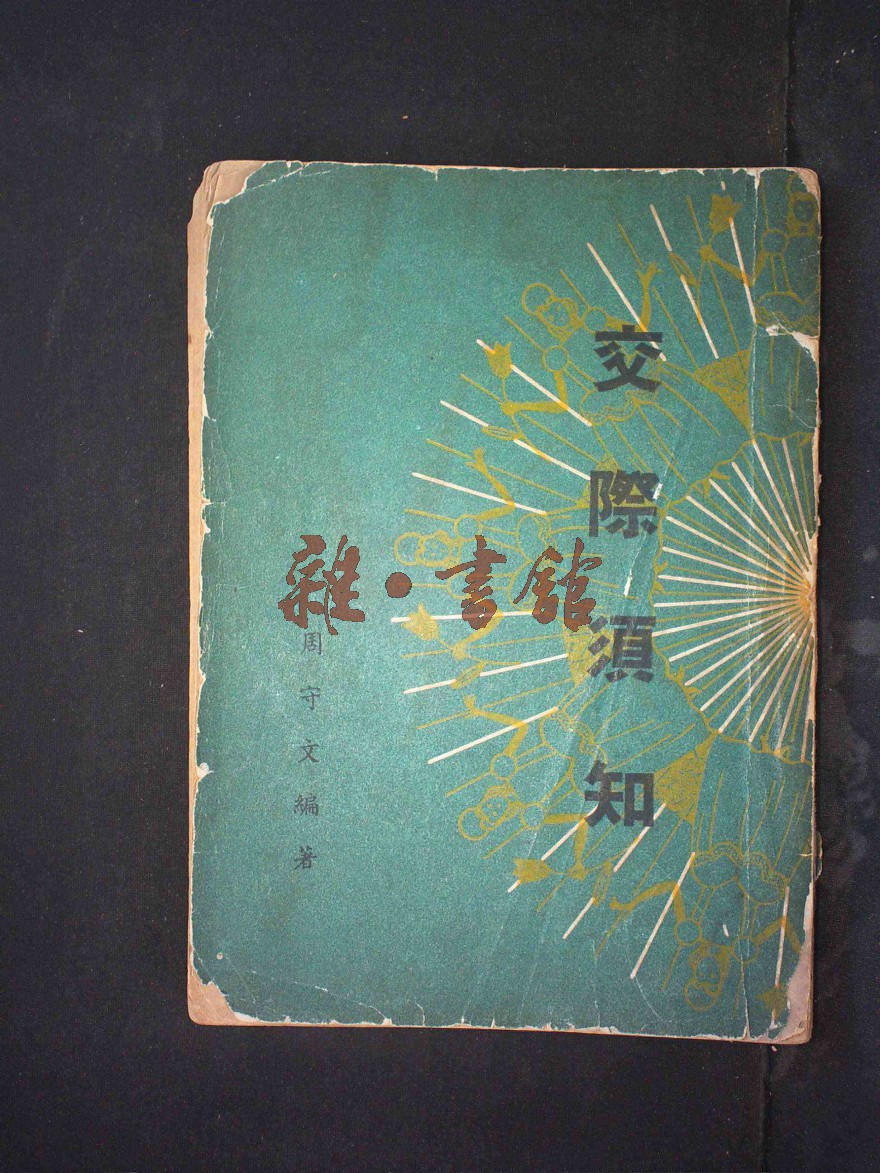 交際須知
雜·書館
周守文編著